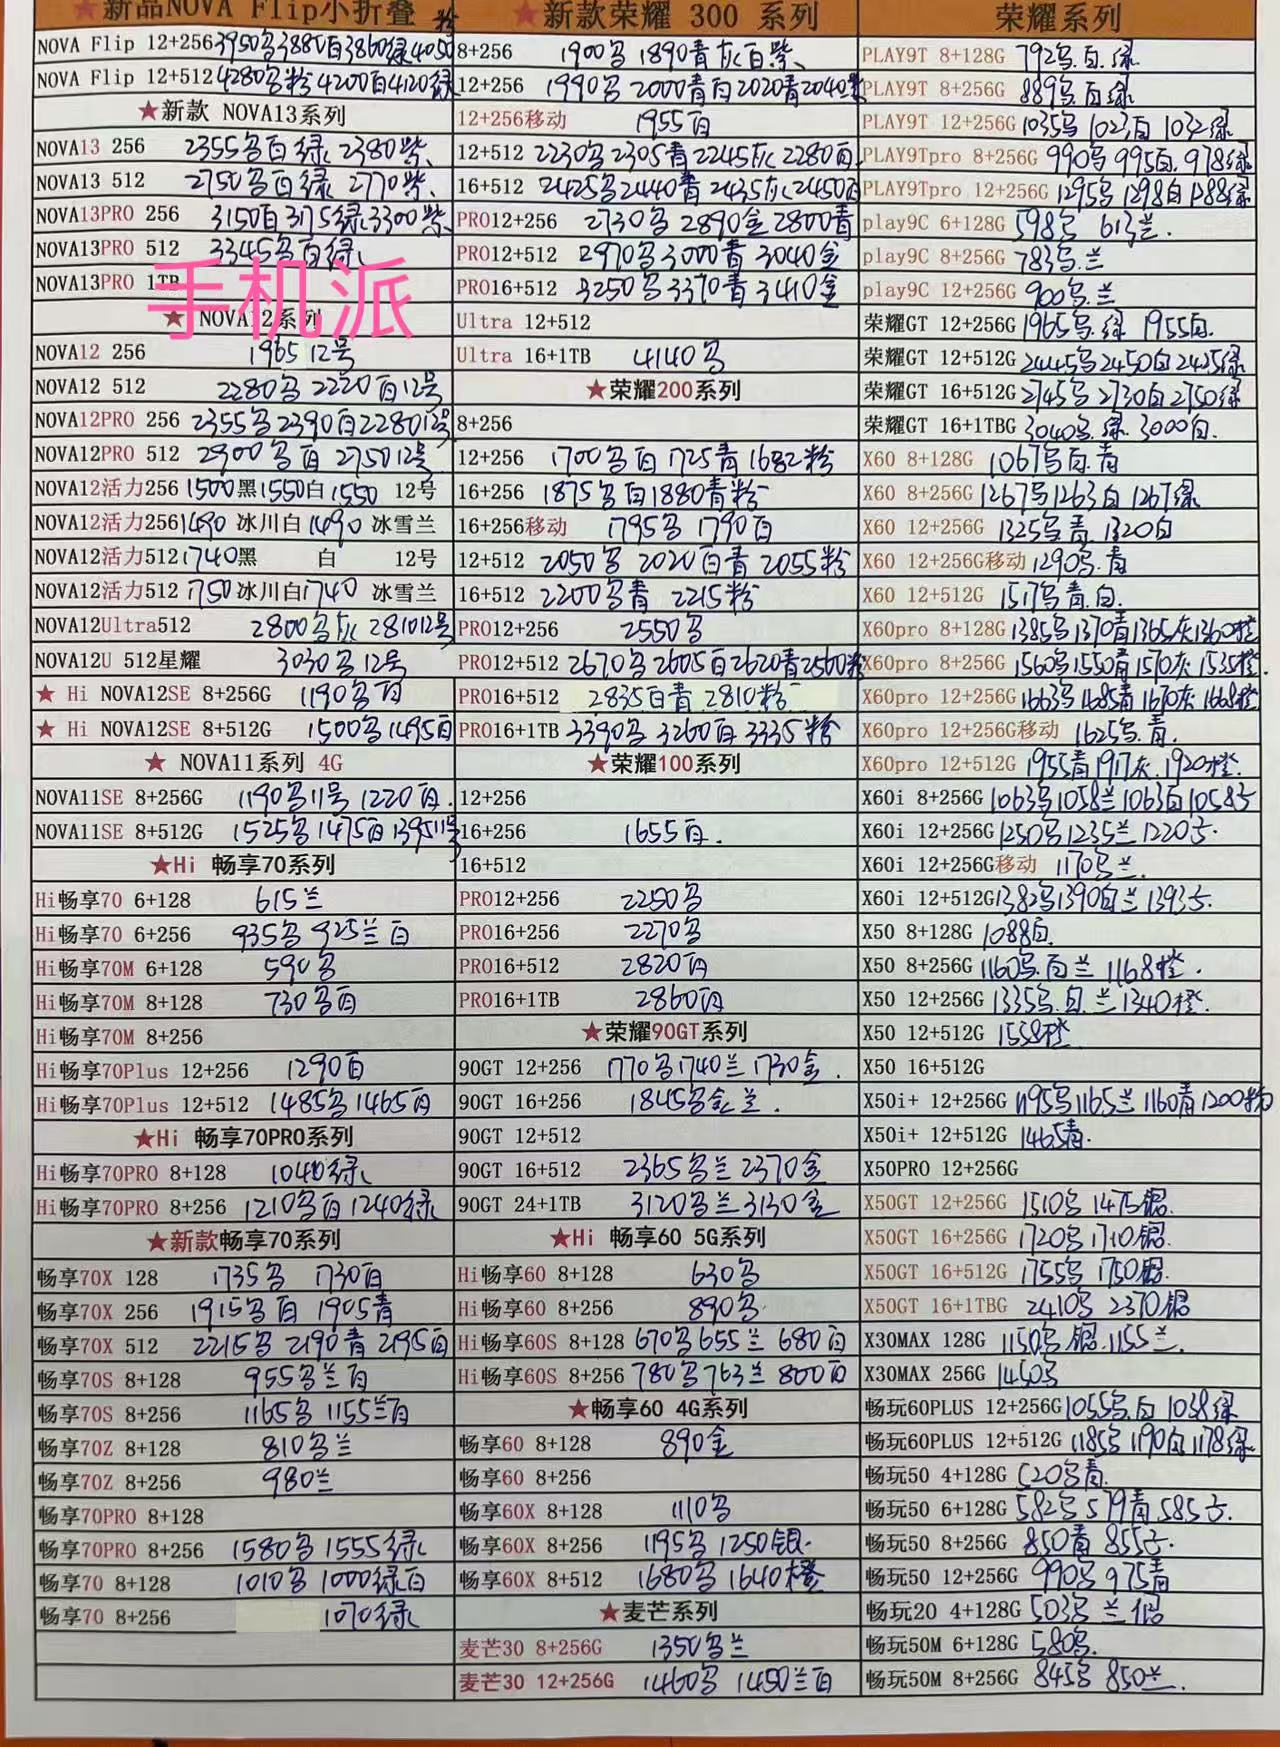 ★新品NOVA Flip小折叠
NOVA Flip 12+256 3950乌3880白3860绿4050粉
NOVA Flip 12+512 4280乌粉4200白4120绿
★新款 NOVA13系列
NOVA13 256 2355乌白绿 2380紫
NOVA13 512 2750乌白绿 2770紫
NOVA13PRO 256 3150白3175绿3300紫
NOVA13PRO 512 3345乌白绿
NOVA13PRO 1TB
手机派
★ NOVA12系列
NOVA12 256 1965 12号
NOVA12 512 2280乌 2220白12号
NOVA12PRO 256 2355乌2390白2280 12号
NOVA12PRO 512 2900乌白 2750 12号
NOVA12活力256 1500黑1550白1550 12号
NOVA12活力256 1490 冰川白1490 冰雪兰
NOVA12活力512 1740黑 白 12号
NOVA12活力512 1750冰川白1740 冰雪兰
NOVA12Ultra512 2800乌灰 2810 12号
NOVA12U 512星耀 3030乌12号
★ Hi NOVA12SE 8+256G 1190乌白
★ Hi NOVA12SE 8+512G 1500乌1495白
★ NOVA11系列 4G
NOVA11SE 8+256G 1190乌11号 1220白.
NOVA11SE 8+512G 1525乌1475白1395 11号
★Hi 畅享70系列
Hi畅享70 6+128 615兰
Hi畅享70 6+256 935乌 925兰白
Hi畅享70M 6+128 590乌
Hi畅享70M 8+128 730乌白
Hi畅享70M 8+256
Hi畅享70Plus 12+256 1290白
Hi畅享70Plus 12+512 1485乌1465白
★Hi 畅享70PRO系列
Hi畅享70PRO 8+128 1040绿
Hi畅享70PRO 8+256 1210乌白1240绿
★新款畅享70系列
畅享70X 128 1735乌 1730白
畅享70X 256 1915乌白 1905青
畅享70X 512 2215乌 2190青 2195白
畅享70S 8+128 955乌兰白
畅享70S 8+256 1165乌 1155兰白
畅享70Z 8+128 810乌兰
畅享70Z 8+256 980兰
畅享70PRO 8+128
畅享70PRO 8+256 1580乌 1555绿
畅享70 8+128 1010乌 1000绿白
畅享70 8+256 1070绿
★新款荣耀 300 系列
8+256 1900乌 1890青灰白紫
12+256 1990乌 2000青白2020青2040紫
12+256移动 1955白
12+512 2230乌2305青2245灰2280白.
16+512 2425乌2440青2435灰2450白
PRO12+256 2730乌 2890金 2800青
PRO12+512 2970乌3000青 3040金
PRO16+512 3250乌3370青3410金
Ultra 12+512
Ultra 16+1TB 4140乌
★荣耀200系列
8+256
12+256 1700乌白1725青1682粉
16+256 1875乌白1880青粉
16+256移动 1795乌 1790白
12+512 2050乌 2020白青 2055粉
16+512 2200乌青 2215粉
PRO12+256 2550乌
PRO12+512 2670乌2605白2620青2560粉
PRO16+512 2835白青 2810粉
PRO16+1TB 3390乌 3260白 3335粉
★荣耀100系列
12+256
16+256 1655白.
16+512
PRO12+256 2250乌
PRO16+256 2270乌
PRO16+512 2820白
PRO16+1TB 2860白
★荣耀90GT系列
90GT 12+256 1770乌1740兰1730金.
90GT 16+256 1845乌金兰.
90GT 12+512
90GT 16+512 2365乌兰2370金
90GT 24+1TB 3120乌兰3130金
★Hi 畅享60 5G系列
Hi畅享60 8+128 630乌
Hi畅享60 8+256 890乌
Hi畅享60S 8+128 670乌655兰 680白
Hi畅享60S 8+256 780乌763兰 800白
★畅享60 4G系列
畅享60 8+128 890金
畅享60 8+256
畅享60X 8+128 1110乌
畅享60X 8+256 1195乌 1250银.
畅享60X 8+512 1680乌 1640橙
★麦芒系列
麦芒30 8+256G 1350乌兰
麦芒30 12+256G 1460乌 1450兰白
荣耀系列
PLAY9T 8+128G 792乌.白.绿
PLAY9T 8+256G 889乌.白绿
PLAY9T 12+256G 1035乌 1023白 1032绿
PLAY9Tpro 8+256G 990乌995白.978绿
PLAY9Tpro 12+256G 1295乌1298白1288绿
play9C 6+128G 598乌 613兰.
play9C 8+256G 783乌.兰
play9C 12+256G 900乌.兰
荣耀GT 12+256G 1965乌.绿 1955白.
荣耀GT 12+512G 2445乌2450白2425绿
荣耀GT 16+512G 2745乌2730白2750绿
荣耀GT 16+1TBG 3040乌.绿.3000白.
X60 8+128G 1067乌白.青
X60 8+256G 1267乌1263白1267绿
X60 12+256G 1325乌青.1320白
X60 12+256G移动 1290乌.青
X60 12+512G 1517乌青.白.
X60pro 8+128G 1385乌1370青1365灰1360橙
X60pro 8+256G 1560乌1550青1570灰1535橙.
X60pro 12+256G 1663乌1685青1670灰1668橙
X60pro 12+256G移动 1625乌.青.
X60pro 12+512G 1955青1917灰.1920橙.
X60i 8+256G 1063乌1058兰1063白1058云
X60i 12+256G 1250乌1235兰1220云.
X60i 12+256G移动 1170乌兰.
X60i 12+512G 1382乌1390白兰1393云.
X50 8+128G 1088白.
X50 8+256G 1160乌.白兰 1168橙.
X50 12+256G 1335乌.白.兰1340橙.
X50 12+512G 1558橙
X50 16+512G
X50i+ 12+256G 1195乌1165兰1160青1200粉
X50i+ 12+512G 1465青.
X50PRO 12+256G
X50GT 12+256G 1510乌 1475银.
X50GT 16+256G 1720乌1710银.
X50GT 16+512G 1755乌 1750银.
X50GT 16+1TBG 2410乌 2370银
X30MAX 128G 1150乌.银.1155兰.
X30MAX 256G 1450乌
畅玩60PLUS 12+256G 1055乌.白 1038绿
畅玩60PLUS 12+512G 1185乌1190白1178绿
畅玩50 4+128G 520乌青.
畅玩50 6+128G 582乌 579青 585云.
畅玩50 8+256G 850青 855云.
畅玩50 12+256G 990乌 975青
畅玩20 4+128G 503乌 兰 银
畅玩50M 6+128G 580乌.
畅玩50M 8+256G 845乌 850兰.